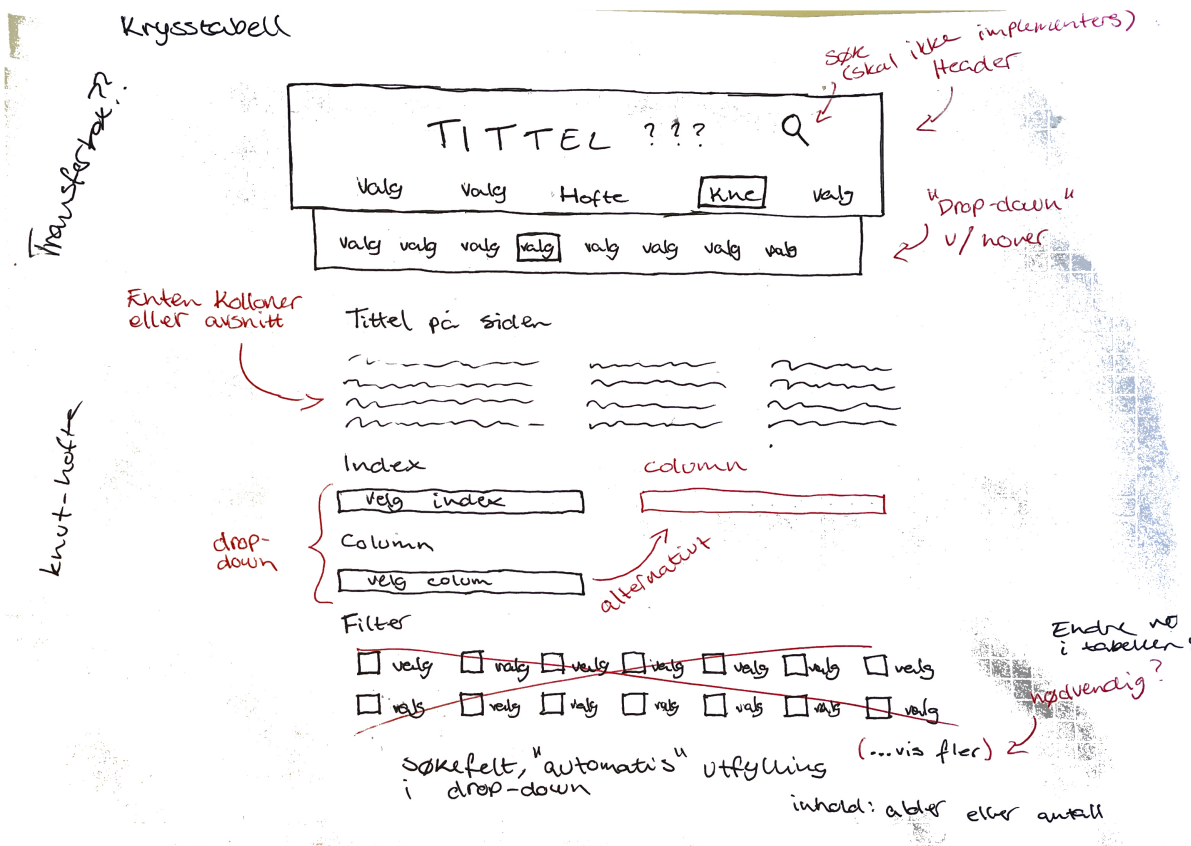 Krysstabell
Transferrat??
knut-hofte
søk
(skal ikke implementers)
Header
TITTEL ???
valg valg Hofte Kne valg
valg valg valg valg valg valg valg valg
"Drop-down"
v/hover
Enten Kolloner
eller avsnitt
Tittel på siden
Index
column
velg index
drop-
down
Column
velg colum
alternativt
Filter
valg valg valg valg valg valg valg
valg valg valg valg valg valg valg
Endre no
i tabellen?
nødvendig?
(...vis fler)
søkefelt, "automatis" utfylling
i drop-down
inhold: alder eller antall